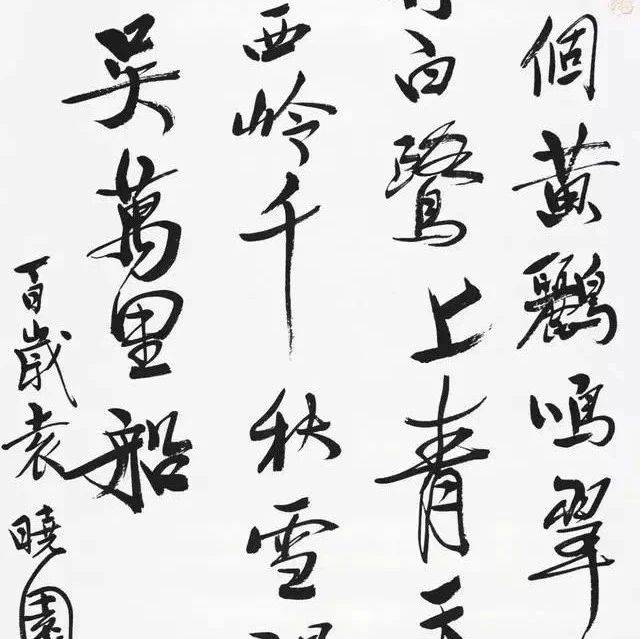 個黃鸝鳴翠
白鷺上青天
西岭千秋雪
吳萬里船
百歲袁曉園